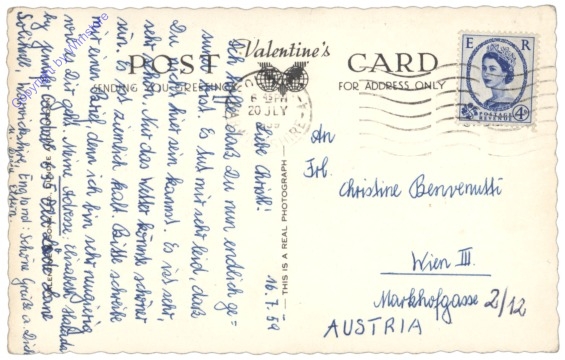 POST Valentine's CARD
SENDING YOU GREETINGS FOR ADDRESS ONLY
E R
POSTAGE
REVENUE
4D
20 JLY
THIS IS A REAL PHOTOGRAPH
16.7.59
Liebe Christl!
Ich hoffe, daß Du nun endlich ge=
sund bist. Es tut mir sehr leid, daß
Du nicht hier sein kannst. Es ist sehr,
sehr schön. Nur das Wetter könnte schöner
sein. Es ist ziemlich kalt. Bitte schreibe
mir einen Brief, denn ich bin sehr neugierig
wie es Dir geht. Meine Adresse: Elisabeth
by
Solihull, Warwickshire, England. Schöne Grüße a. Dich
u. Deine Eltern.
An
Frl.
Christine Benvenutti
Wien III.
Markhofgasse 2/12
AUSTRIA